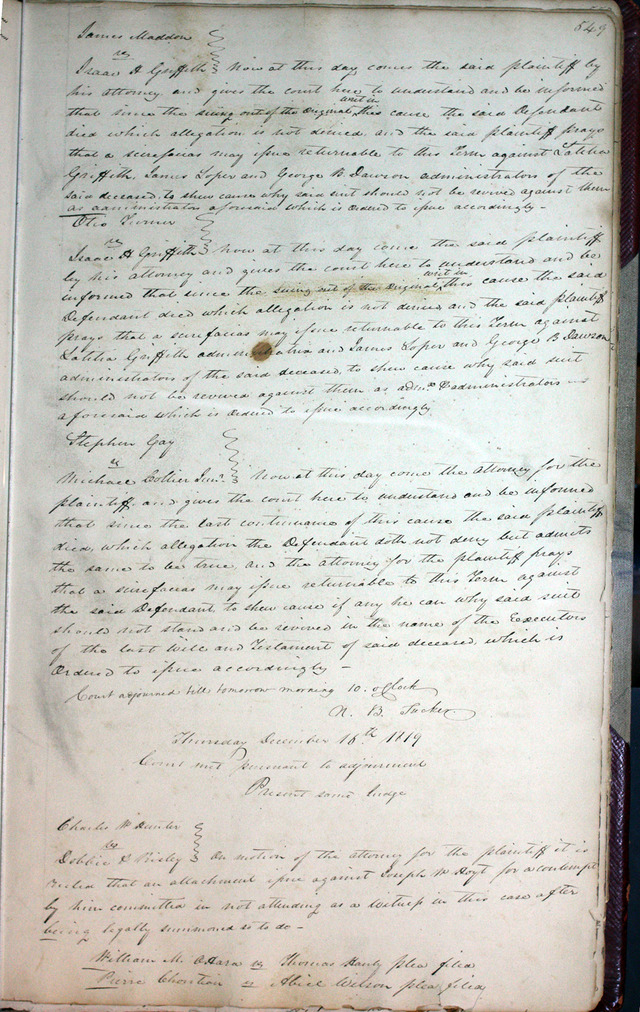 549
James Maddon
vs
Isaac H Griffith } Now at this day comes the said plaintiff by
his attorney and gives the court here to understand and be informed
writ in
that since the suing out of the Original this cause the said Defendant
died which allegation is not denied and the said plaintiff prays
that a scirefacias may issue returnable to this Term against Latitia
Griffith James Loper and George B. Dawson administrators of the
said deceased to shew cause why said suit should not be revived against them
as administrators aforesaid which is ordered to issue accordingly –
Otis
vs
Isaac H Griffith } Now at this day come the said plaintiff
by his attorney and gives the court here to understand and be
writ in
informed that since the suing out of the Original this cause the said
Defendant died which allegation is not denied and the said plaintiff
prays that a scirefacias may issue returnable to this Term against
Latitia Griffith administratria and James Loper and George B Dawson
administrators of the said deceased, to shew cause why said suit
should not be revived against them as administrators
aforesaid which is ordered to issue accordingly.
Stephen Gay
vs
Michael Collier Junr } Now at this day come the attorney for the
plaintiff and gives the court here to understand and be informed
that since the last continuance of this cause the said plaintiff
died, which allegation the Defendant doth not deny but admits
the same to be true, and the attorney for the plaintiff prays
that a scirefacias may issue returnable to this Term against
the said Defendant to shew cause if any he can why said suit
should not stand and be revived in the name of the Executors
of the last Will and Testament of said deceased which is
Ordered to issue accordingly –
Court adjourned till tomorrow morning 10. oClock
N. B. Tucker
Thursday December 16th 1819
Court met pursuant to adjournment
Present same Judge
Charles W
vs
S Risley } On motion of the attorney for the plaintiff it is
that an attachment issue against Joseph W Hoyt for a contempt
by him committed in not attending as a witness in this case after
being legally summoned so to do –
William M. OHara vs Thomas Hanly plea filed
Pierre vs Abiel Wilson plea filed